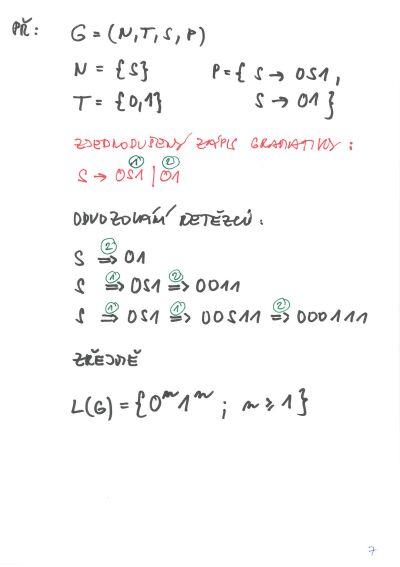 PŘ: G = (N,T,S,P)
N = {S} P = { S → 0S1,
T = {0,1} S → 01 }
ZJEDNODUŠENÝ ZÁPIS GRAMATIKY:
① ②
S → 0S1 | 01
ODVOZOVÁNÍ ŘETĚZCŮ:
S ②⇒ 01
S ①⇒ 0S1 ②⇒ 0011
S ①⇒ 0S1 ①⇒ 00S11 ②⇒ 000111
ZŘEJMĚ
L(G) = {0ⁿ1ⁿ ; n ≥ 1}
7